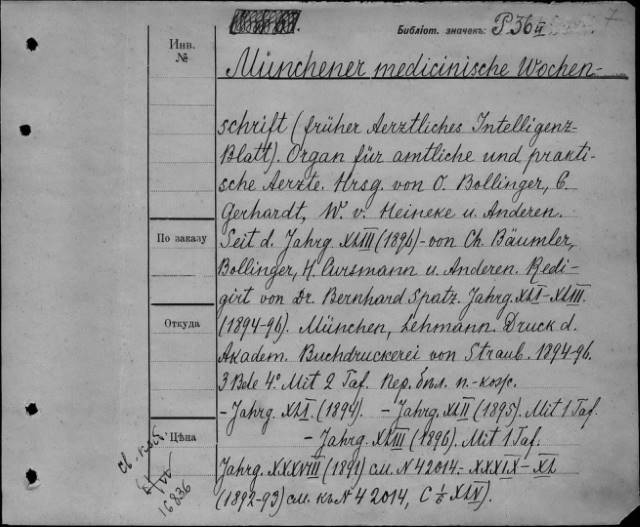 Библіот. значекъ: P 36 II
7
Инв. №
Münchener medicinische Wochen-
schrift (früher Aerztliches Intelligenz-
Blatt). Organ für amtliche und prakti-
sche Aerzte. Hrsg. von O. Bollinger, C.
Gerhardt, W. v. Heineke u. Anderen.
По заказу
Seit d. Jahrg. XLIII (1896) - von Ch. Bäumler,
Bollinger, H. Cursmann u. Anderen. Redi-
girt von Dr. Bernhard Spatz. Jahrg. XLI-XLIII.
Откуда
(1894-96). München, Lehmann. Druck d.
Akadem. Buchdruckerei von Straub. 1894-96.
3 Bde 4º. Mit 2 Taf. Пер. бѣл. п.-кож.
- Jahrg. XLI. (1894). - Jahrg. XLII (1895). Mit 1 Taf.
Цѣна
- Jahrg. XLIII (1896). Mit 1 Taf.
Jahrg. XXXVIII (1891) см. N 42014.- XXXIX - XL
(1892-93) см. къ N 42014, XLV).
16836